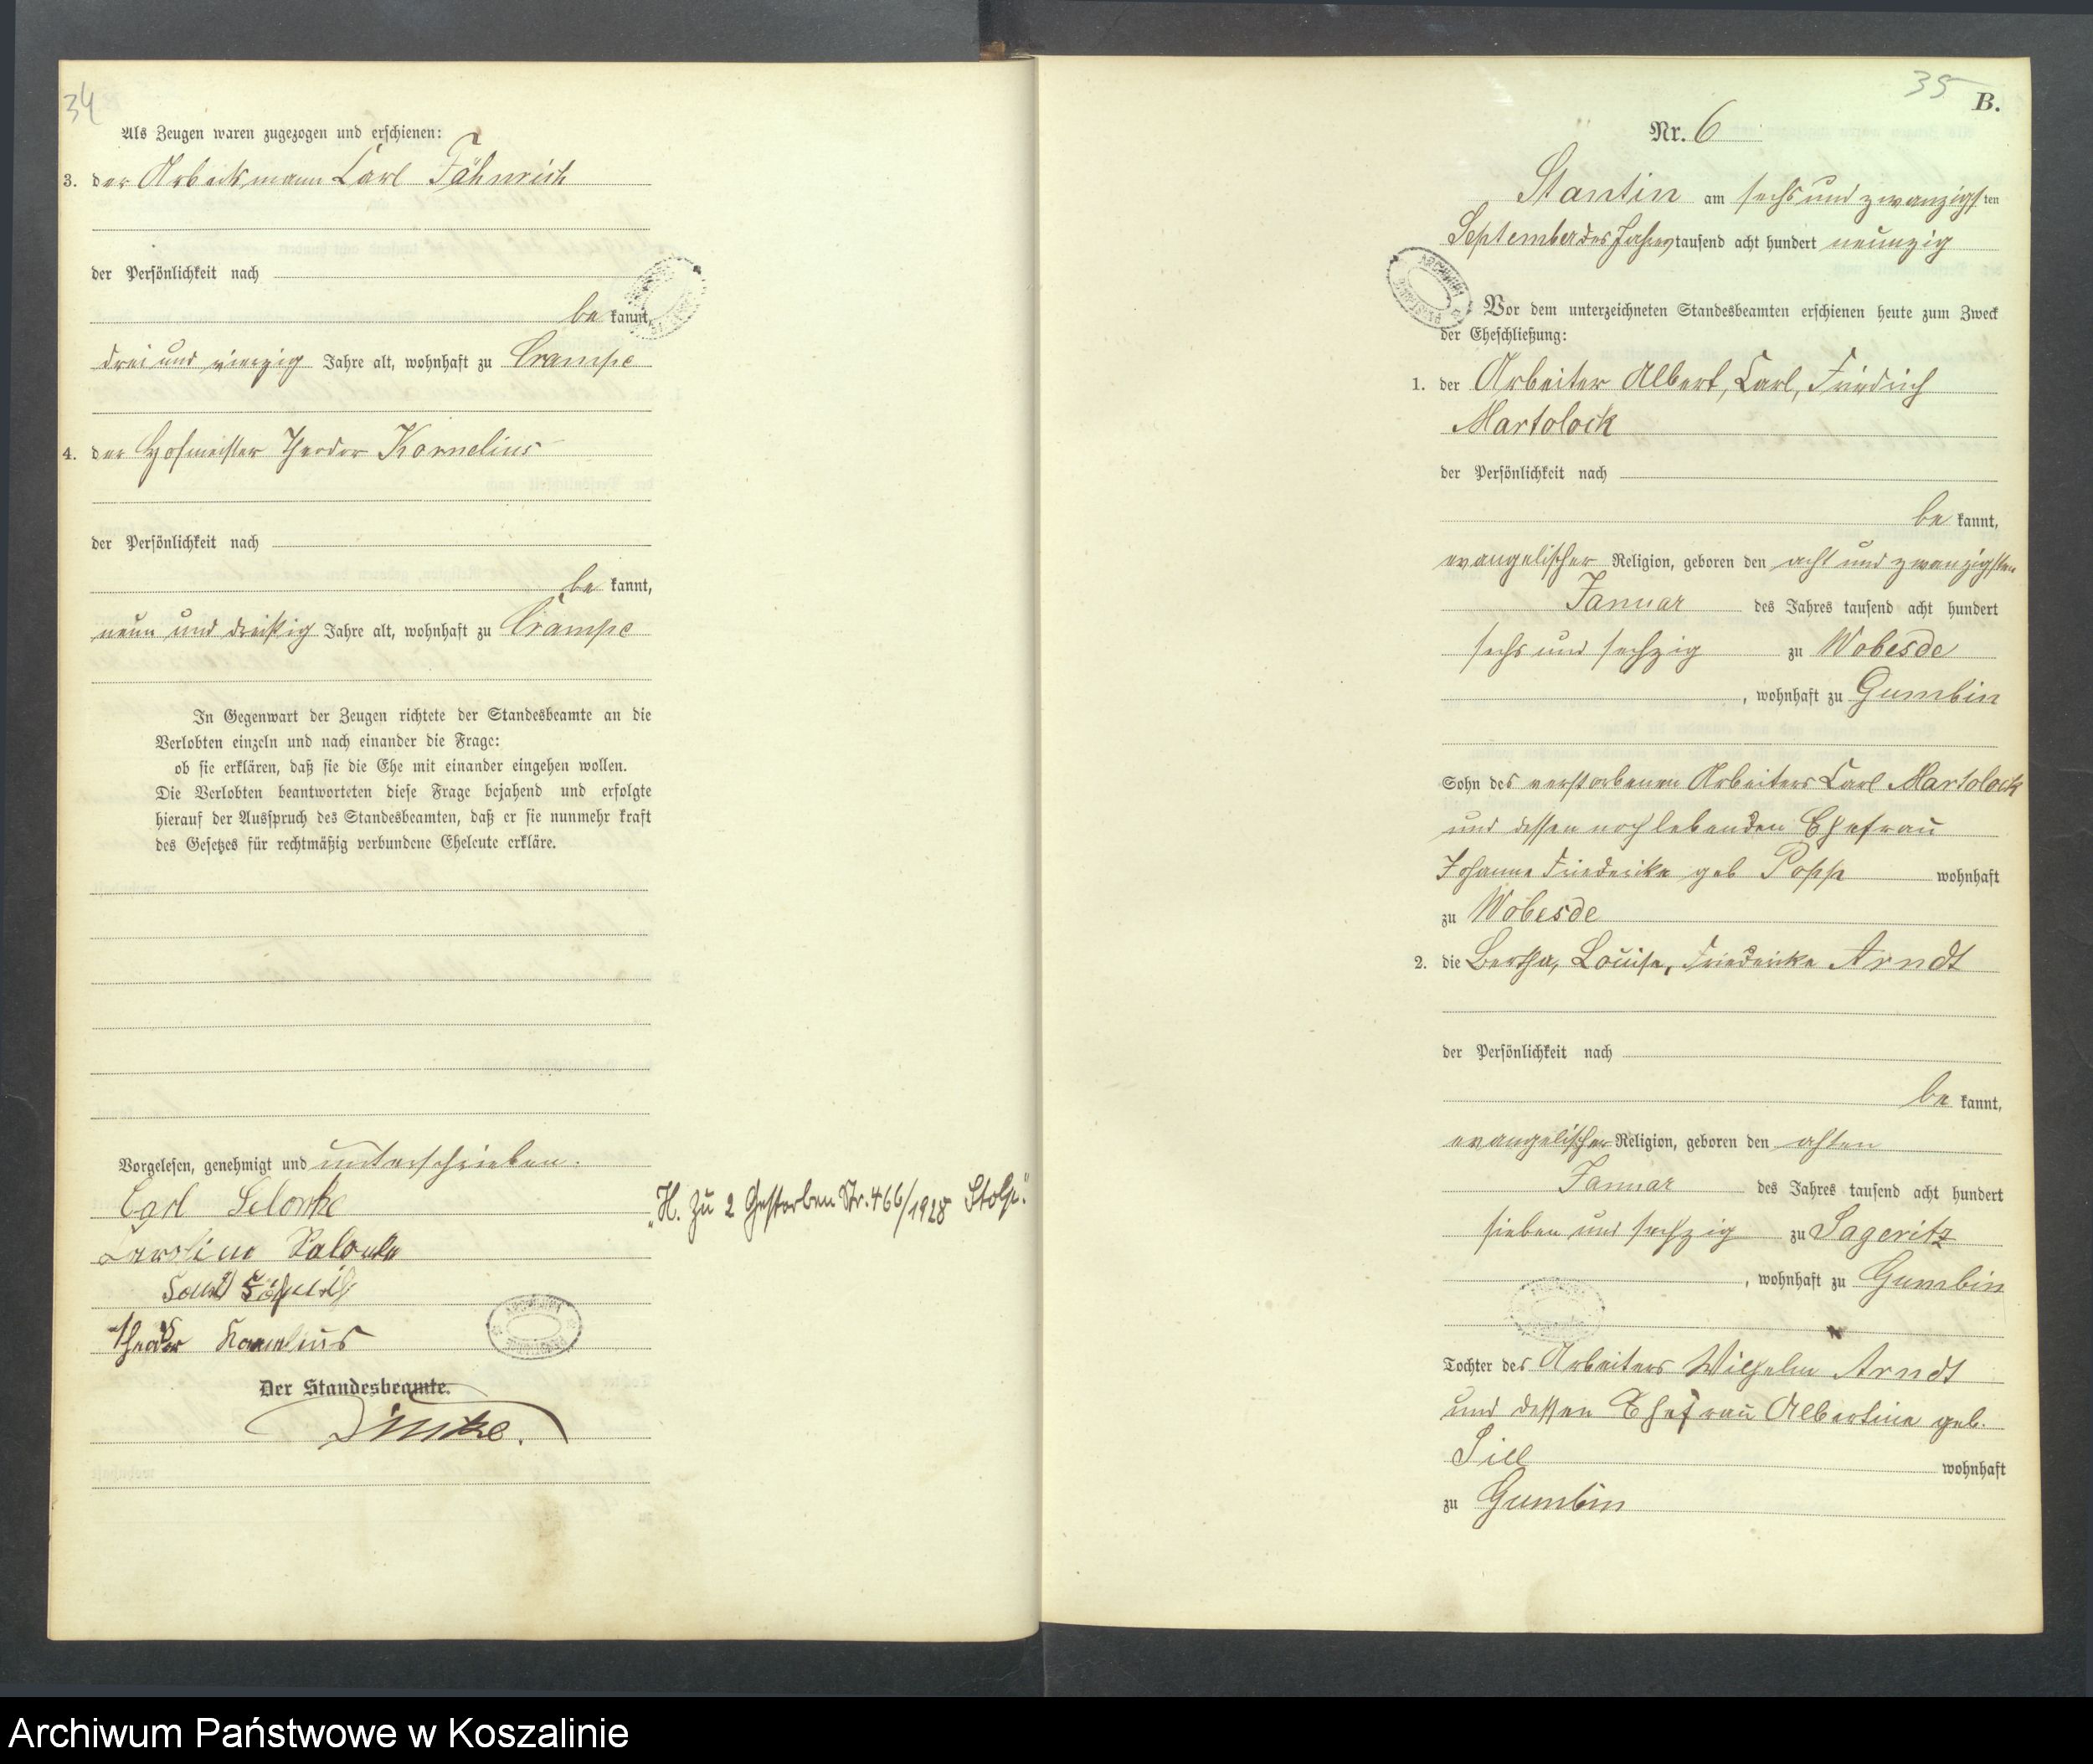 34
Als Zeugen waren zugezogen und erschienen:
3. der Arbeitsmann Carl Fähnrich
der Persönlichkeit nach
be kannt,
drei und vierzig Jahre alt, wohnhaft zu Crampe
4. der Hofmeister Theodor Kornelius
der Persönlichkeit nach
be kannt,
neun und dreißig Jahre alt, wohnhaft zu Crampe
In Gegenwart der Zeugen richtete der Standesbeamte an die
Verlobten einzeln und nach einander die Frage:
ob sie erklären, daß sie die Ehe mit einander eingehen wollen.
Die Verlobten beantworteten diese Frage bejahend und erfolgte
hierauf der Ausspruch des Standesbeamten, daß er sie nunmehr kraft
des Gesetzes für rechtmäßig verbundene Eheleute erkläre.
Vorgelesen, genehmigt und unterschrieben.
Carl Selonke
Caroline Selonke
Carl Fähnrich
Theodor Kornelius
Der Standesbeamte.
"H. Zu 2 Gestorben Nr. 466/1928 Stolp."
35
B.
Nr. 6
Stantin am sechs und zwanzigsten
September des Jahres tausend acht hundert neunzig
Vor dem unterzeichneten Standesbeamten erschienen heute zum Zweck
der Eheschließung:
1. der Arbeiter Albert, Carl, Friedrich
Martolock
der Persönlichkeit nach
be kannt,
evangelischer Religion, geboren den acht und zwanzigsten
Januar des Jahres tausend acht hundert
sechs und sechzig zu Wobesde
, wohnhaft zu Gumbin
Sohn des verstorbenen Arbeiters Carl Martolock
und dessen noch lebenden Ehefrau
Johanne Friedericke geb Popp wohnhaft
zu Wobesde
2. die Bertha, Louise, Friedericke Arndt
der Persönlichkeit nach
be kannt,
evangelischer Religion, geboren den achten
Januar des Jahres tausend acht hundert
sieben und sechzig zu Sageritz
, wohnhaft zu Gumbin
Tochter des Arbeiters Wilhelm Arndt
und dessen Ehefrau Albertine geb.
Sill wohnhaft
zu Gumbin
Archiwum Państwowe w Koszalinie